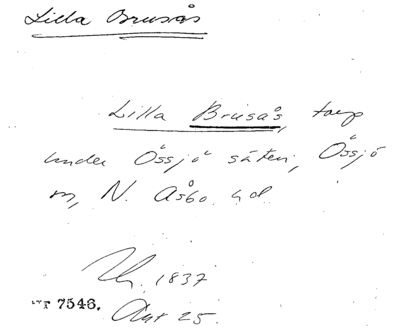 Lilla Brusås
Lilla Brusås, torp
under Össjö säteri, Össjö
sn, N. Åsbo hd
1837
7546. 25.